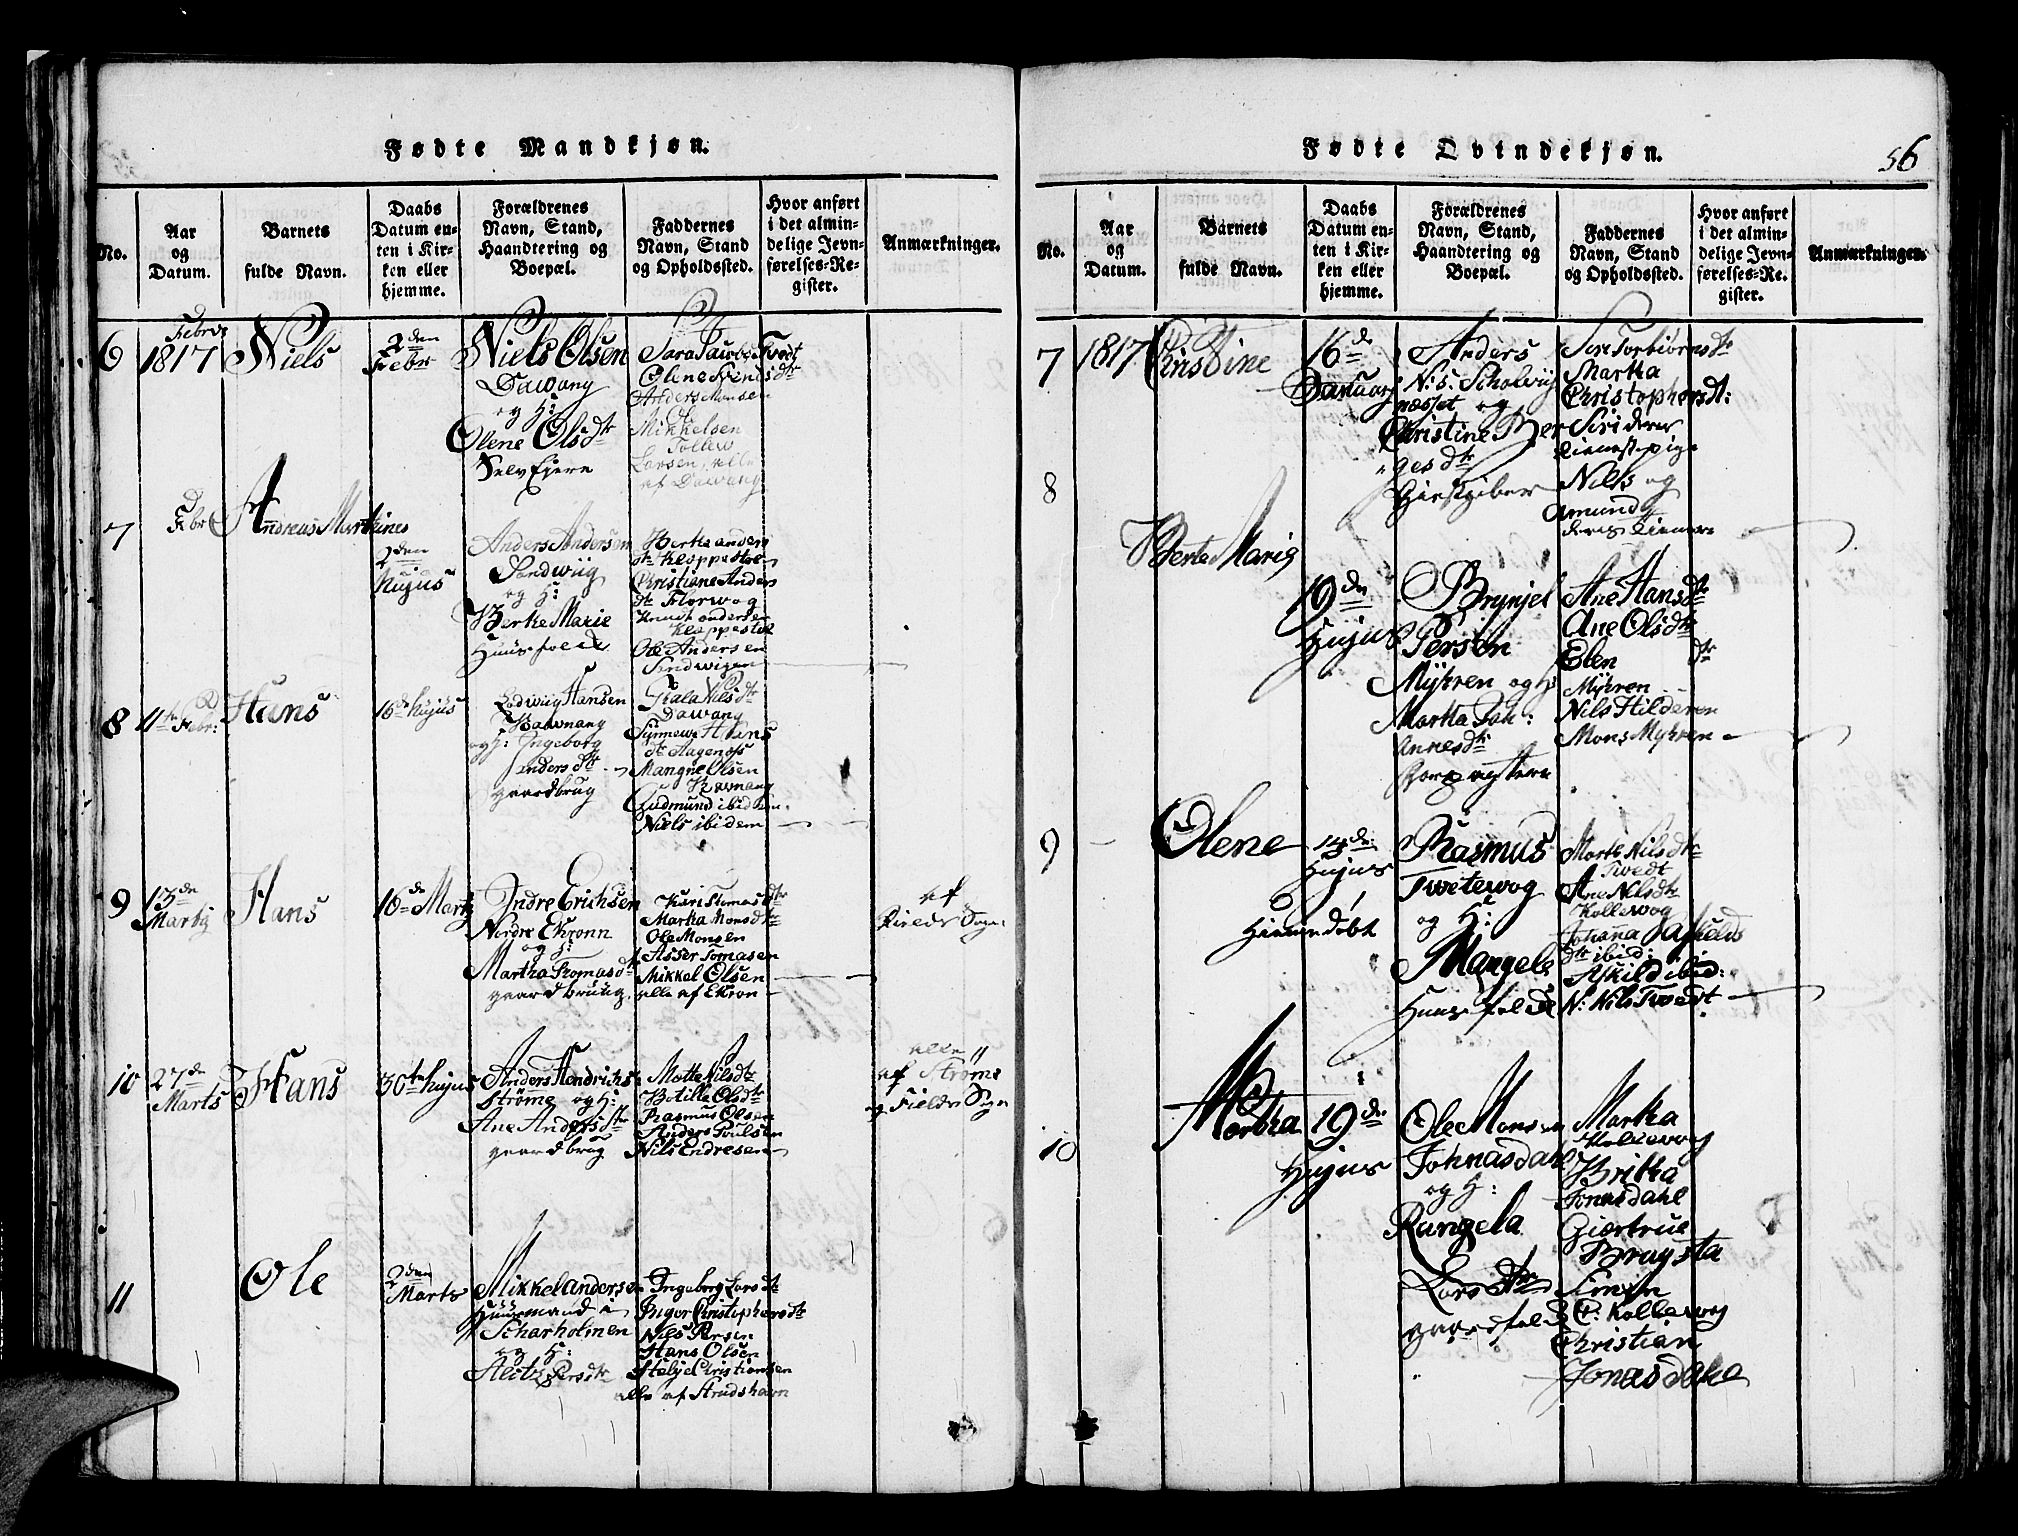 Fødte Mandkjøn.
No.
Aar
og
Datum.
Barnets
fulde Navn.
Daabs
Datum en-
ten i Kir-
ken eller
hjemme.
Forældrenes
Navn, Stand,
Haandtering og
Boepæl.
Faddernes
Navn, Stand
og Opholdssted.
Hvor anført
i det almin-
delige Jevn-
førelses-Re-
gister.
Anmærkninger.
6
1817
Niels
2den
Febr
Niels Olsen
Dawang
og H:
Olene Olsdtr
Selv Ejere
Olene Svendsdtr
Anders Monsen
Mikkelsen
Larsen, alle
af Dawang
7
Febr
Andreas Marthines
2den
hujus
Anders Andersen
Sandwiig
og H:
Berthe Marie
Huusfolk
Christiane Anders
dtr Florwog
Knudt Andersen
Kloppestøl
Ole Andersen
Sandwigen
8
11te Febr:
Hans
16de hujus
Lodwiig Hansen
Hawnang
og H: Ingeborg
Andersdtr
gaardbrug
Dawang
Synnewe Hans
dtr Hagenæss
Mangne Olsen
Hawnang
Gudmund ibidem
Niels ibidem
9
13de
Martij
Hans
16de Martij
Andre Erichsen
Nordre Ekronn
og H:
Martha Thomasdtr
gaardbruug
Kari Tomasdtr
Martha Monsdtr
Ole Monsen
Asser Tomasen
Mikkel Olsen
alle af Ekron
af
Fields Sogn
10
27de
Marts
Hans
30te hujus
Anders Hendrichs:
Strøme og H:
Ane Andersdtr
gaardbrug
Motte Nilsdtr
Botille Olsdtr
Rasmus Olsen
Anders Poulsen
Nils Endresen
alle
af Strøme
og Fields Sogn
11
Ole
2den
Marts
Mikkel Andersen
Huusmand i
Scharholmen
og H:
Alitz Persdtr
Ingeborg Larsdtr
Ingor Christophersdtr
Nils Persen
Hans Olsen
Helje Christiansen
alle af Strudshavn
Fødte Qvindekjøn.
56
No.
Aar
og
Datum.
Barnets
fulde Navn.
Daabs
Datum en-
ten i Kir-
ken eller
hjemme.
Forældrenes
Navn, Stand,
Haandtering og
Boepæl.
Faddernes
Navn, Stand
og Opholdssted.
Hvor anført
i det almin-
delige Jevn-
førelses-Re-
gister.
Anmærkninger.
7
1817
Christine
16de
Januarj
Anders
N: S: Scholwiig
næsset og
Christine Ber
gesdtr
Giestgiber
Siri Torbiørnsdtr
Martha
Christophersdt:
Siri deres
tienestepige
Nils og
Amund
deres tienere
8
Berte Maria
19de
Hujus
Brynjel
Persen
Myhren og H:
Martha Joh:
annesdtr
Ane Hansdtr
Ane Olsdtr
Elen dtr
Myhren
Nils Hilderen
Mons Myhren
9
Olene
14de
Hujus
Hiemedøbt
Rasmus
Twetewog
og H:
Mangele
Huusfolk
Marte Nilsdtr
Twedt
Ane Nilsdtr
Kollewog
Johanna Askilds
dtr ibid:
Askild ibid:
N: Nils Twedt
10
Martha
19de
Hujus
Ole Monsen
Johnasdahl
og H:
Rangela
Larsdtr
gaardfolk
Martha
Kollewog
Britha
Jonasdahl
Giærtrue
Bragsta
Simon
P: Kollewog
Christian
Jonasdahl